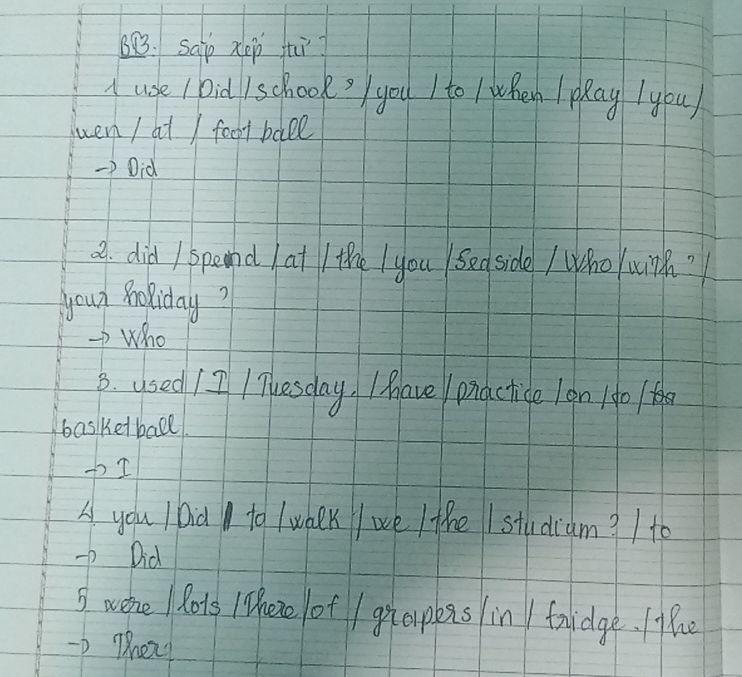 BT3. Sắp xếp từ?
1 use / Did / school? / you / to / when / play / you /
wen / at / foot ball
→ Did
2. did / spend / at / the / you / seaside / Who / with? /
your holiday?
→ Who
3. used / I / Tuesday. / have / practice / on / to /
basketball.
→ I
4 you / Did / to / walk / we / the / studium? / to
→ Did
5 were / lots / There / of / grapers / in / fridge. / the
→ There